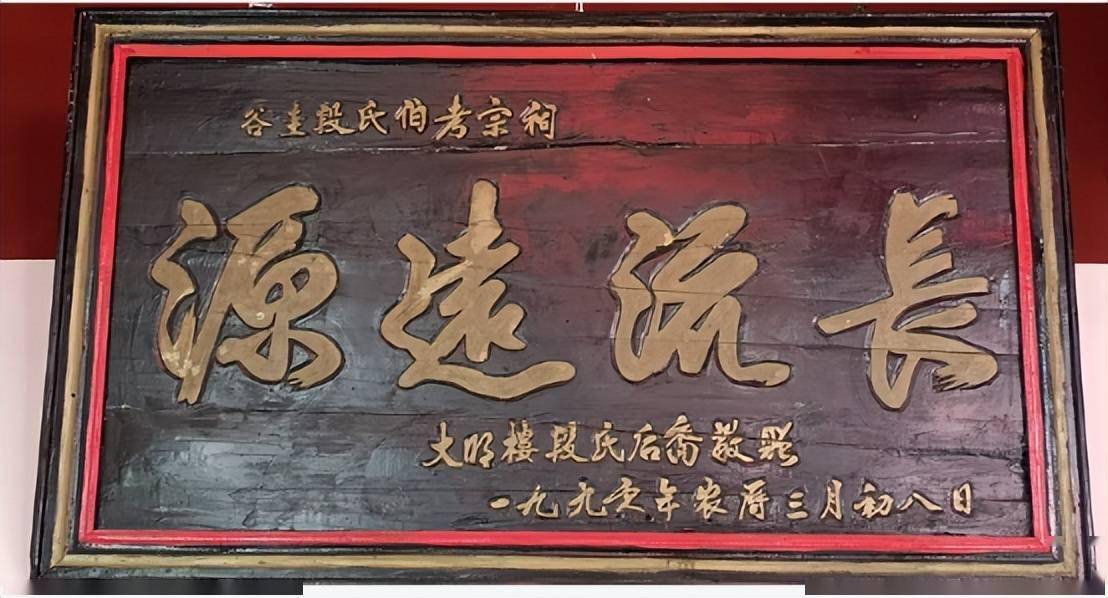 谷圭段氏伯考宗祠
源遠流長
大明樓段氏后裔敬
一九九六年农历三月初八日